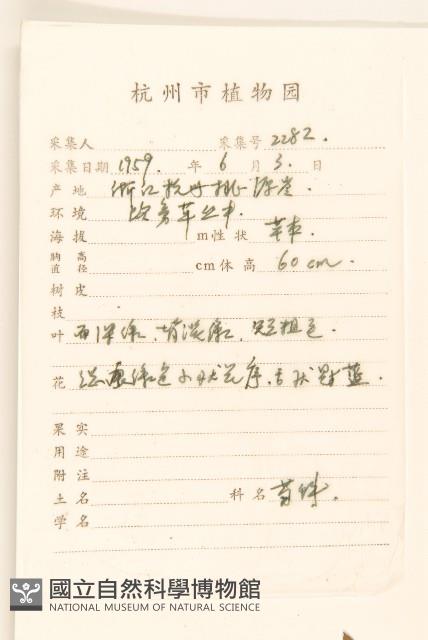 杭州市植物园
采集人 采集号 2282.
采集日期 1959. 年 6 月 3. 日
产地 浙江杭州桃源岭.
环境 路旁草丛中.
海拔 m性状 草本.
胸高直径 cm体高 60cm.
树皮
枝
叶 面深绿,背淡绿,
花
果实
用途
附注
土名 科名 菊科.
学名
國立自然科學博物館
NATIONAL MUSEUM OF NATURAL SCIENCE